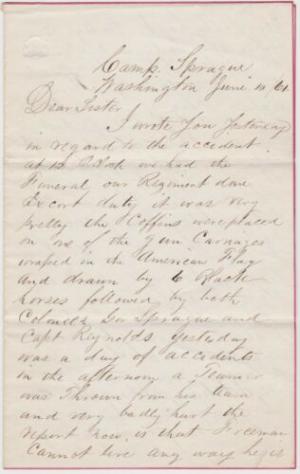 Camp Sprague
Washington June 10/61
Dear Sister
I wrote you yesterday
in regard to the accident
at 12 O Clock we had the
Funeral, our Regiment done
Excort duty it was very
pretty the Coffins were placed
on one of the Gun Carriages
wraped in the American Flag
and drawn by 6 Black
horses followed by both
Colonels Gov Sprague and
Capt Reynolds yesterday
was a day of accidents
in the afternoon a Teamer
was thrown from his team
and very badly hurt the
report now is that Freeman
cannot live any way he is